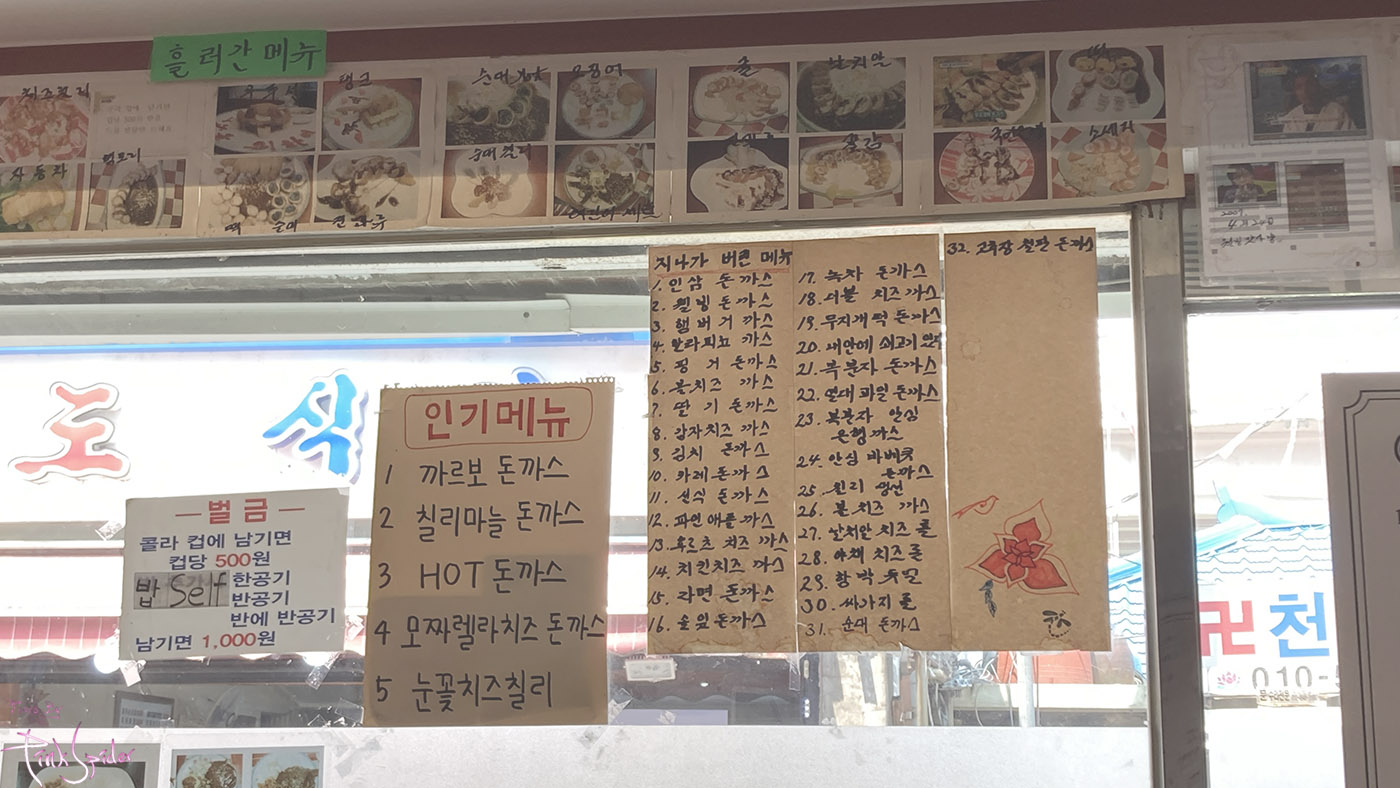 흘러간 메뉴
치즈칠리
탱크
순대
오징어
굴
날치알
자동차
떡
순대
순대 칠리
소세지
2009
인기메뉴
1 까르보 돈까스
2 칠리마늘 돈까스
3 HOT 돈까스
4 모짜렐라치즈 돈까스
5 눈꽃치즈칠리
지나가 버린 메뉴
1. 인삼 돈까스
2. 웰빙 돈까스
3. 햄버거 까스
4. 할라피뇨 까스
5. 핑거 돈까스
6. 볼치즈 까스
7. 딸기 돈까스
8. 감자치즈 까스
9. 김치 돈까스
10. 카레 돈까스
11. 선식 돈까스
12. 파인애플 까스
13. 후르츠 치즈 까스
14. 치킨치즈 까스
15. 라면 돈까스
16. 솔잎 돈까스
17. 녹차 돈까스
18. 더블 치즈 까스
19. 무지개 떡 돈까스
20. 내안에 쇠고기 있다
21. 복분자 돈까스
22. 열대 과일 돈까스
23. 복분자 안심
은행까스
24. 안심 바베큐
돈까스
25. 칠리 생선
26. 볼 치즈 까스
27. 날치알 치즈 롤
28. 야채 치즈 롤
29. 함박
30. 싸가지 롤
31. 순대 돈까스
32. 고추장 철판 돈까스
도 식
ー벌금ー
콜라 컵에 남기면
컵당 500원
밥 Self 한공기
반공기
반에 반공기
남기면 1,000원
卍천
010-5
Pink Spider